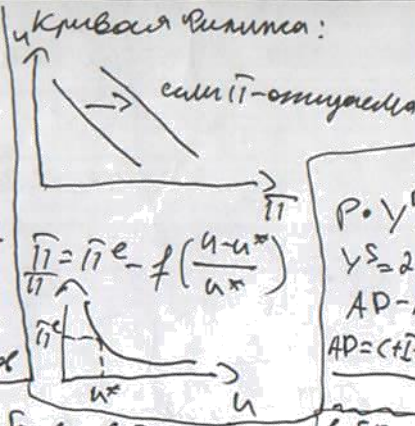 Кривая Филипса:
если π-ожидаема
π
π = π^e - f((u-u*)/u*)
π
π^e
u*
u
P·Y
Y^S = 2
AD-
AD=C+I
ов